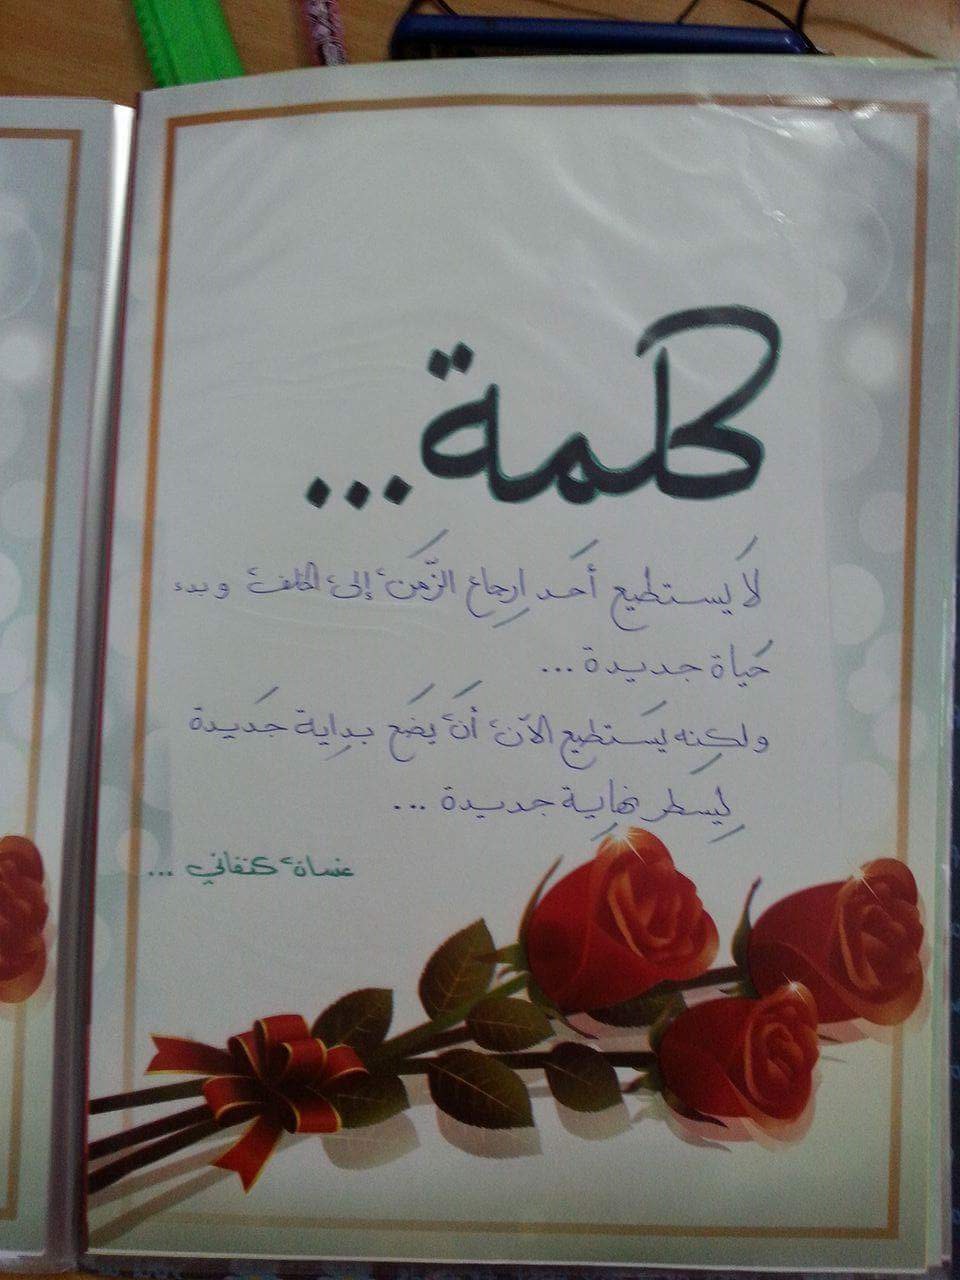 كلمة...
لَا يستطيع أَحَد إرجاع الزَّمن إلى الخلف وبدء
حَياة جديدة ...
ولكِنه يَستطيع الآن أَن يَضَع بِداية جَديدة
لِيسطر نهاية جديدة ...
غسان كنفاني ...